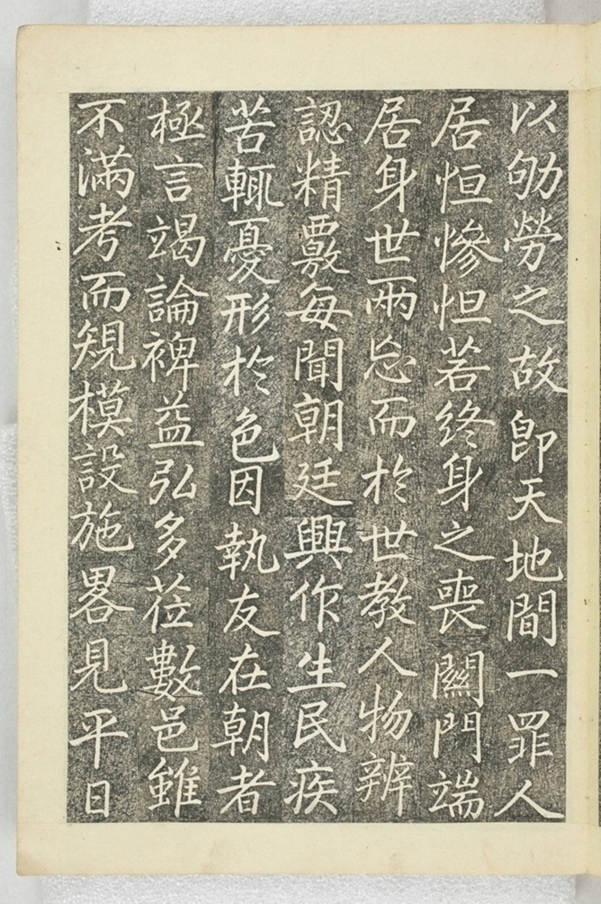 以劬勞之故卽天地間一罪人
居恒慘怛若終身之喪闗門端
居身世兩忘而於世教人物辨
認精覈每聞朝廷興作生民疾
苦輒憂形於色因執友在朝者
極言竭論裨益弘多莅數邑雖
不滿考而䂓模設施畧見平日